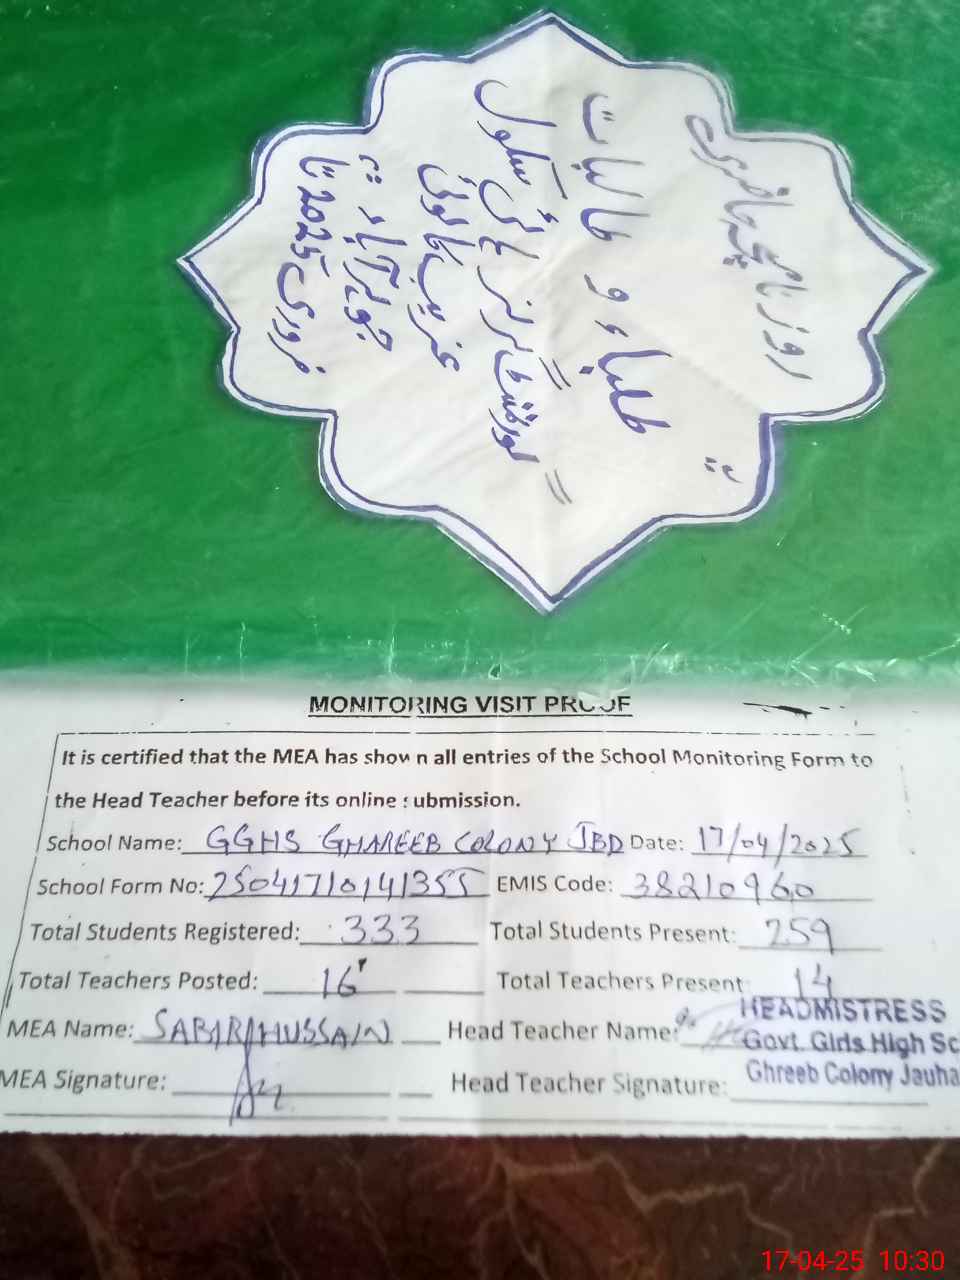 روزنامچہ حاضری
طلباء و طالبات
گورنمنٹ گرلز ہائی سکول
غریب کالونی
جوہر آباد
فروری 2025 تا
MONITORING VISIT PROOF
It is certified that the MEA has shown all entries of the School Monitoring Form to
the Head Teacher before its online submission.
School Name: GGHS GHAREEB COLONY JBD Date: 17/04/2025
School Form No: 25041710141355 EMIS Code: 38210960
Total Students Registered: 333 Total Students Present: 259
Total Teachers Posted: 16 Total Teachers Present: 14
MEA Name: SABIR HUSSAIN Head Teacher Name:
HEADMISTRESS
Govt. Girls High Sc
MEA Signature: Head Teacher Signature:
Ghreeb Colony Jauha
17-04-25 10:30